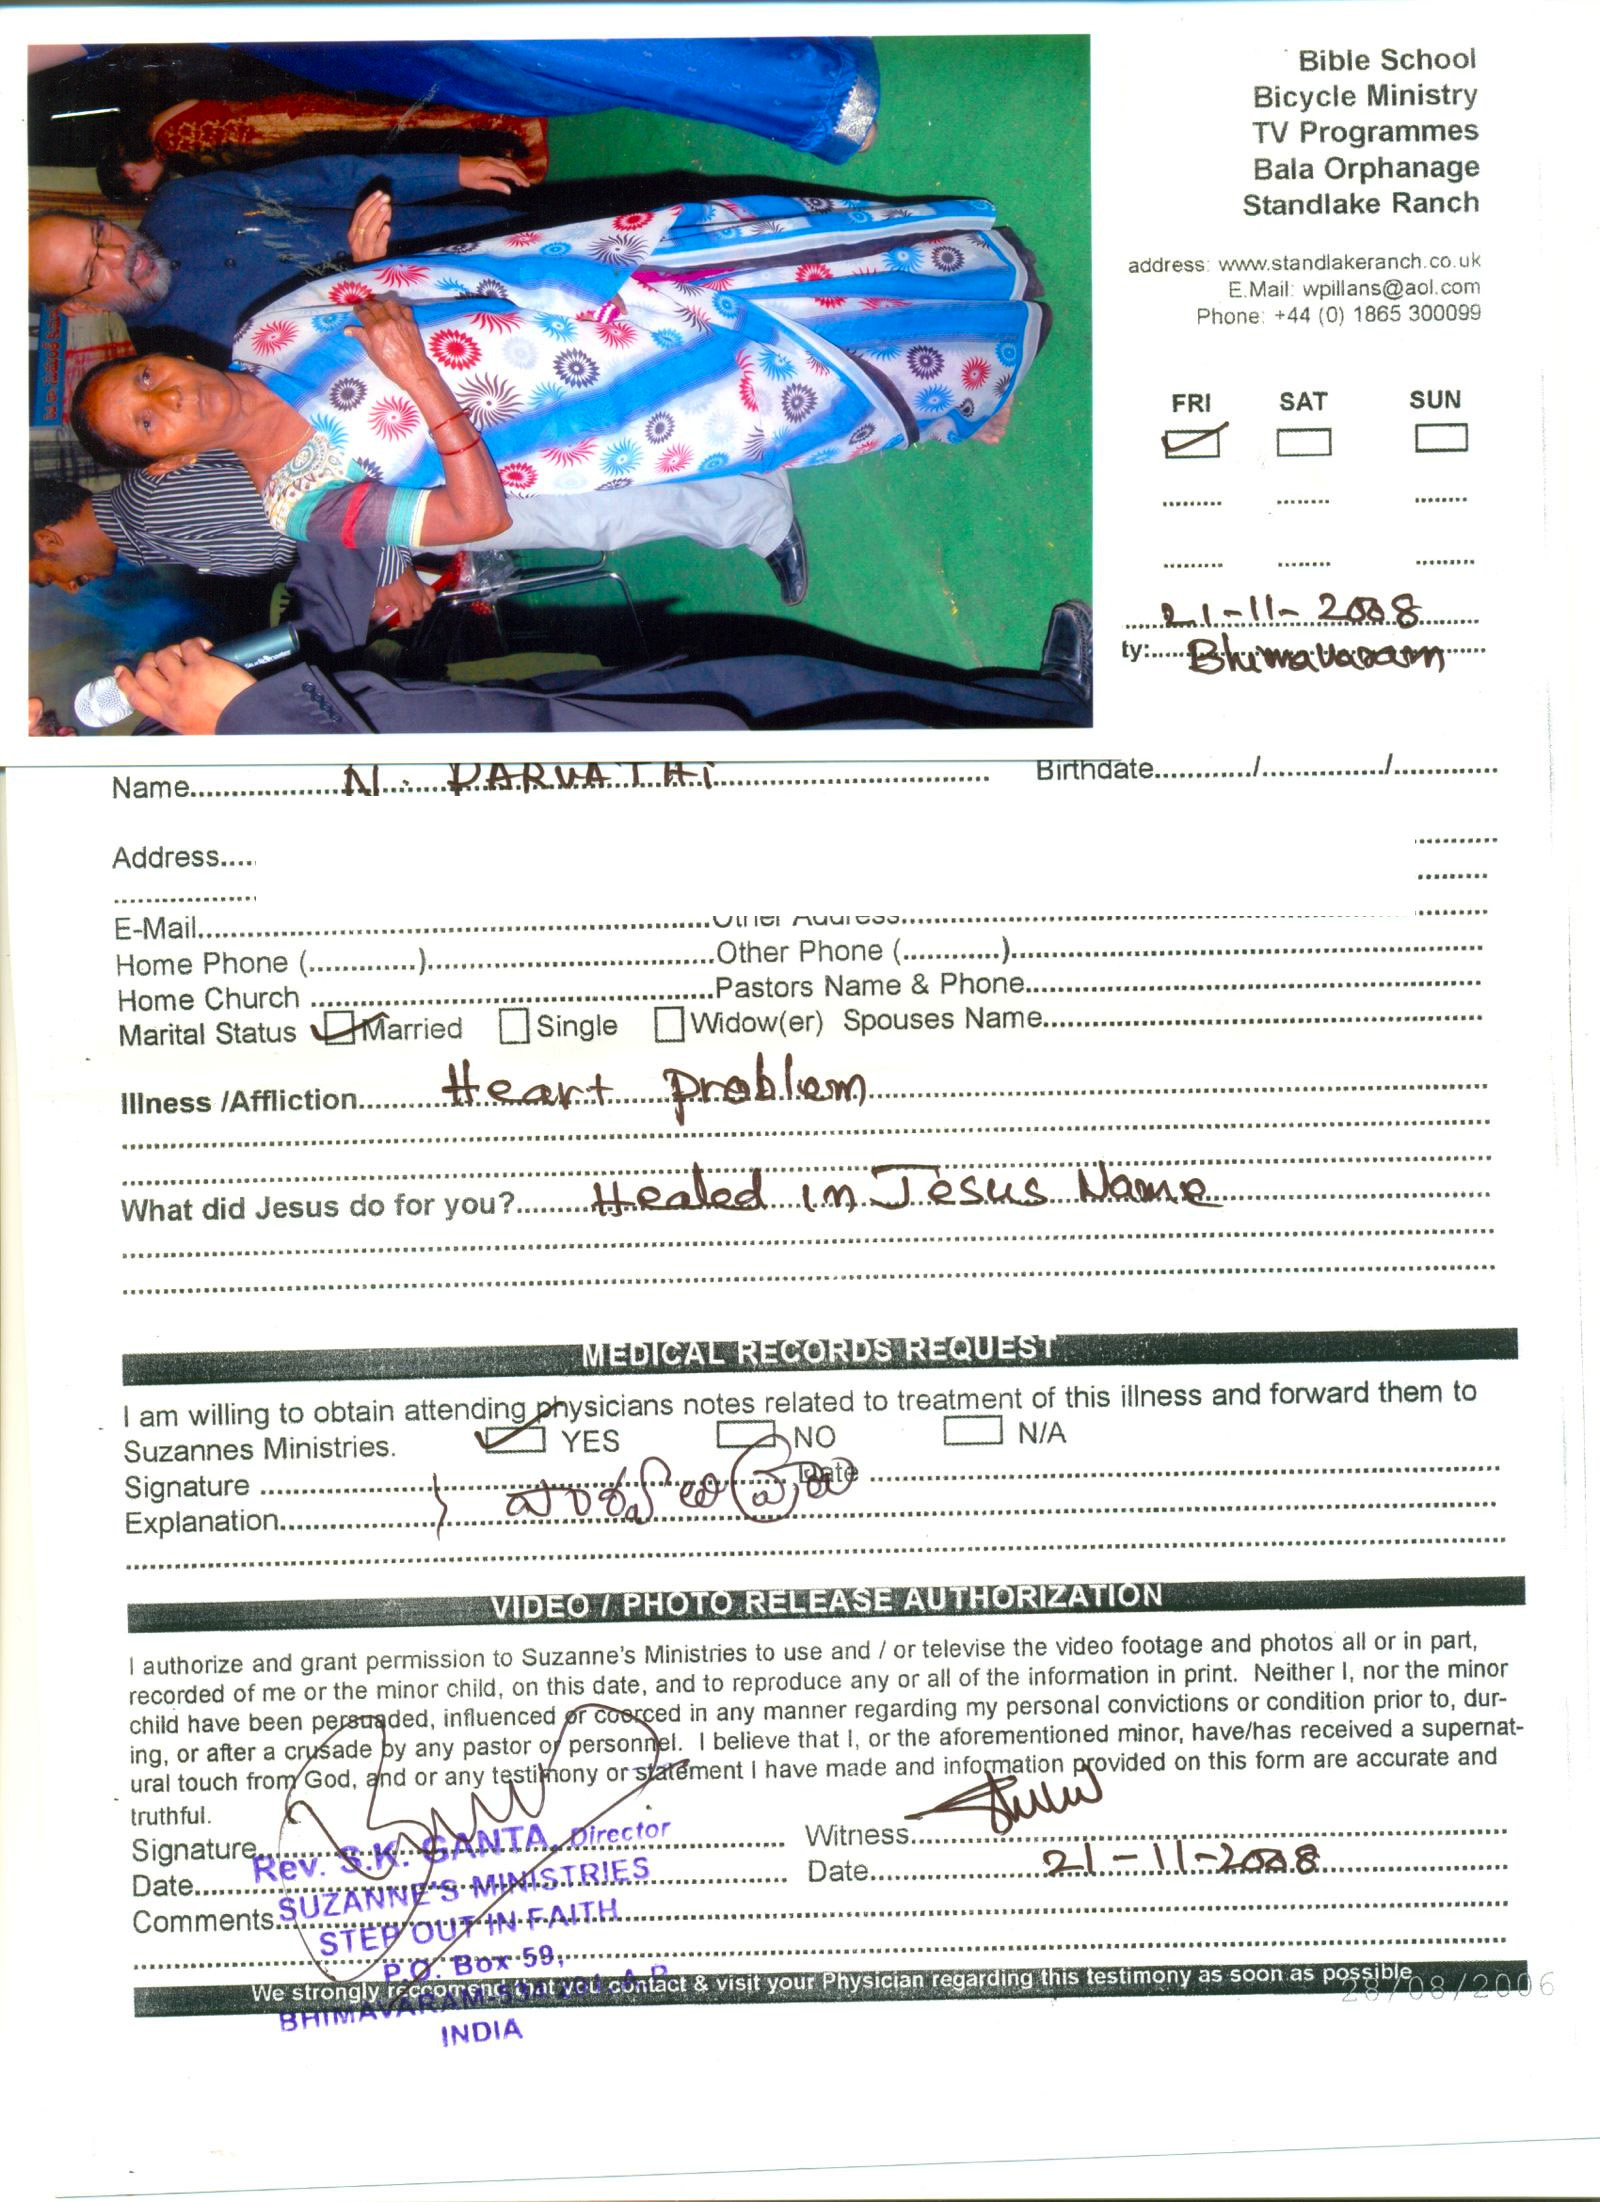 Bible School
Bicycle Ministry
TV Programmes
Bala Orphanage
Standlake Ranch
address: www.standlakeranch.co.uk
E.Mail: wpillans@aol.com
Phone: +44 (0) 1865 300099
FRI SAT SUN
21-11-2008
ty: Bhimavaram
Name N. PARVATHI Birthdate / /
Address
E-Mail Other Address
Home Phone ( ) Other Phone ( )
Home Church Pastors Name & Phone
Marital Status Married Single Widow(er) Spouses Name
Illness /Affliction Heart problem
What did Jesus do for you? Healed in Jesus Name
MEDICAL RECORDS REQUEST
I am willing to obtain attending physicians notes related to treatment of this illness and forward them to
Suzannes Ministries. YES NO N/A
Signature Date
Explanation
VIDEO / PHOTO RELEASE AUTHORIZATION
I authorize and grant permission to Suzanne's Ministries to use and / or televise the video footage and photos all or in part,
recorded of me or the minor child, on this date, and to reproduce any or all of the information in print. Neither I, nor the minor
child have been persuaded, influenced or coerced in any manner regarding my personal convictions or condition prior to, dur-
ing, or after a crusade by any pastor or personnel. I believe that I, or the aforementioned minor, have/has received a supernat-
ural touch from God, and or any testimony or statement I have made and information provided on this form are accurate and
truthful.
Signature Witness
Rev. S.K. GANTA, Director
Date Date 21-11-2008
SUZANNE'S MINISTRIES
Comments
STEP OUT IN FAITH
P.O. Box 59,
We strongly recommend that you contact & visit your Physician regarding this testimony as soon as possible
28/08/2006
BHIMAVARAM A.P.
INDIA